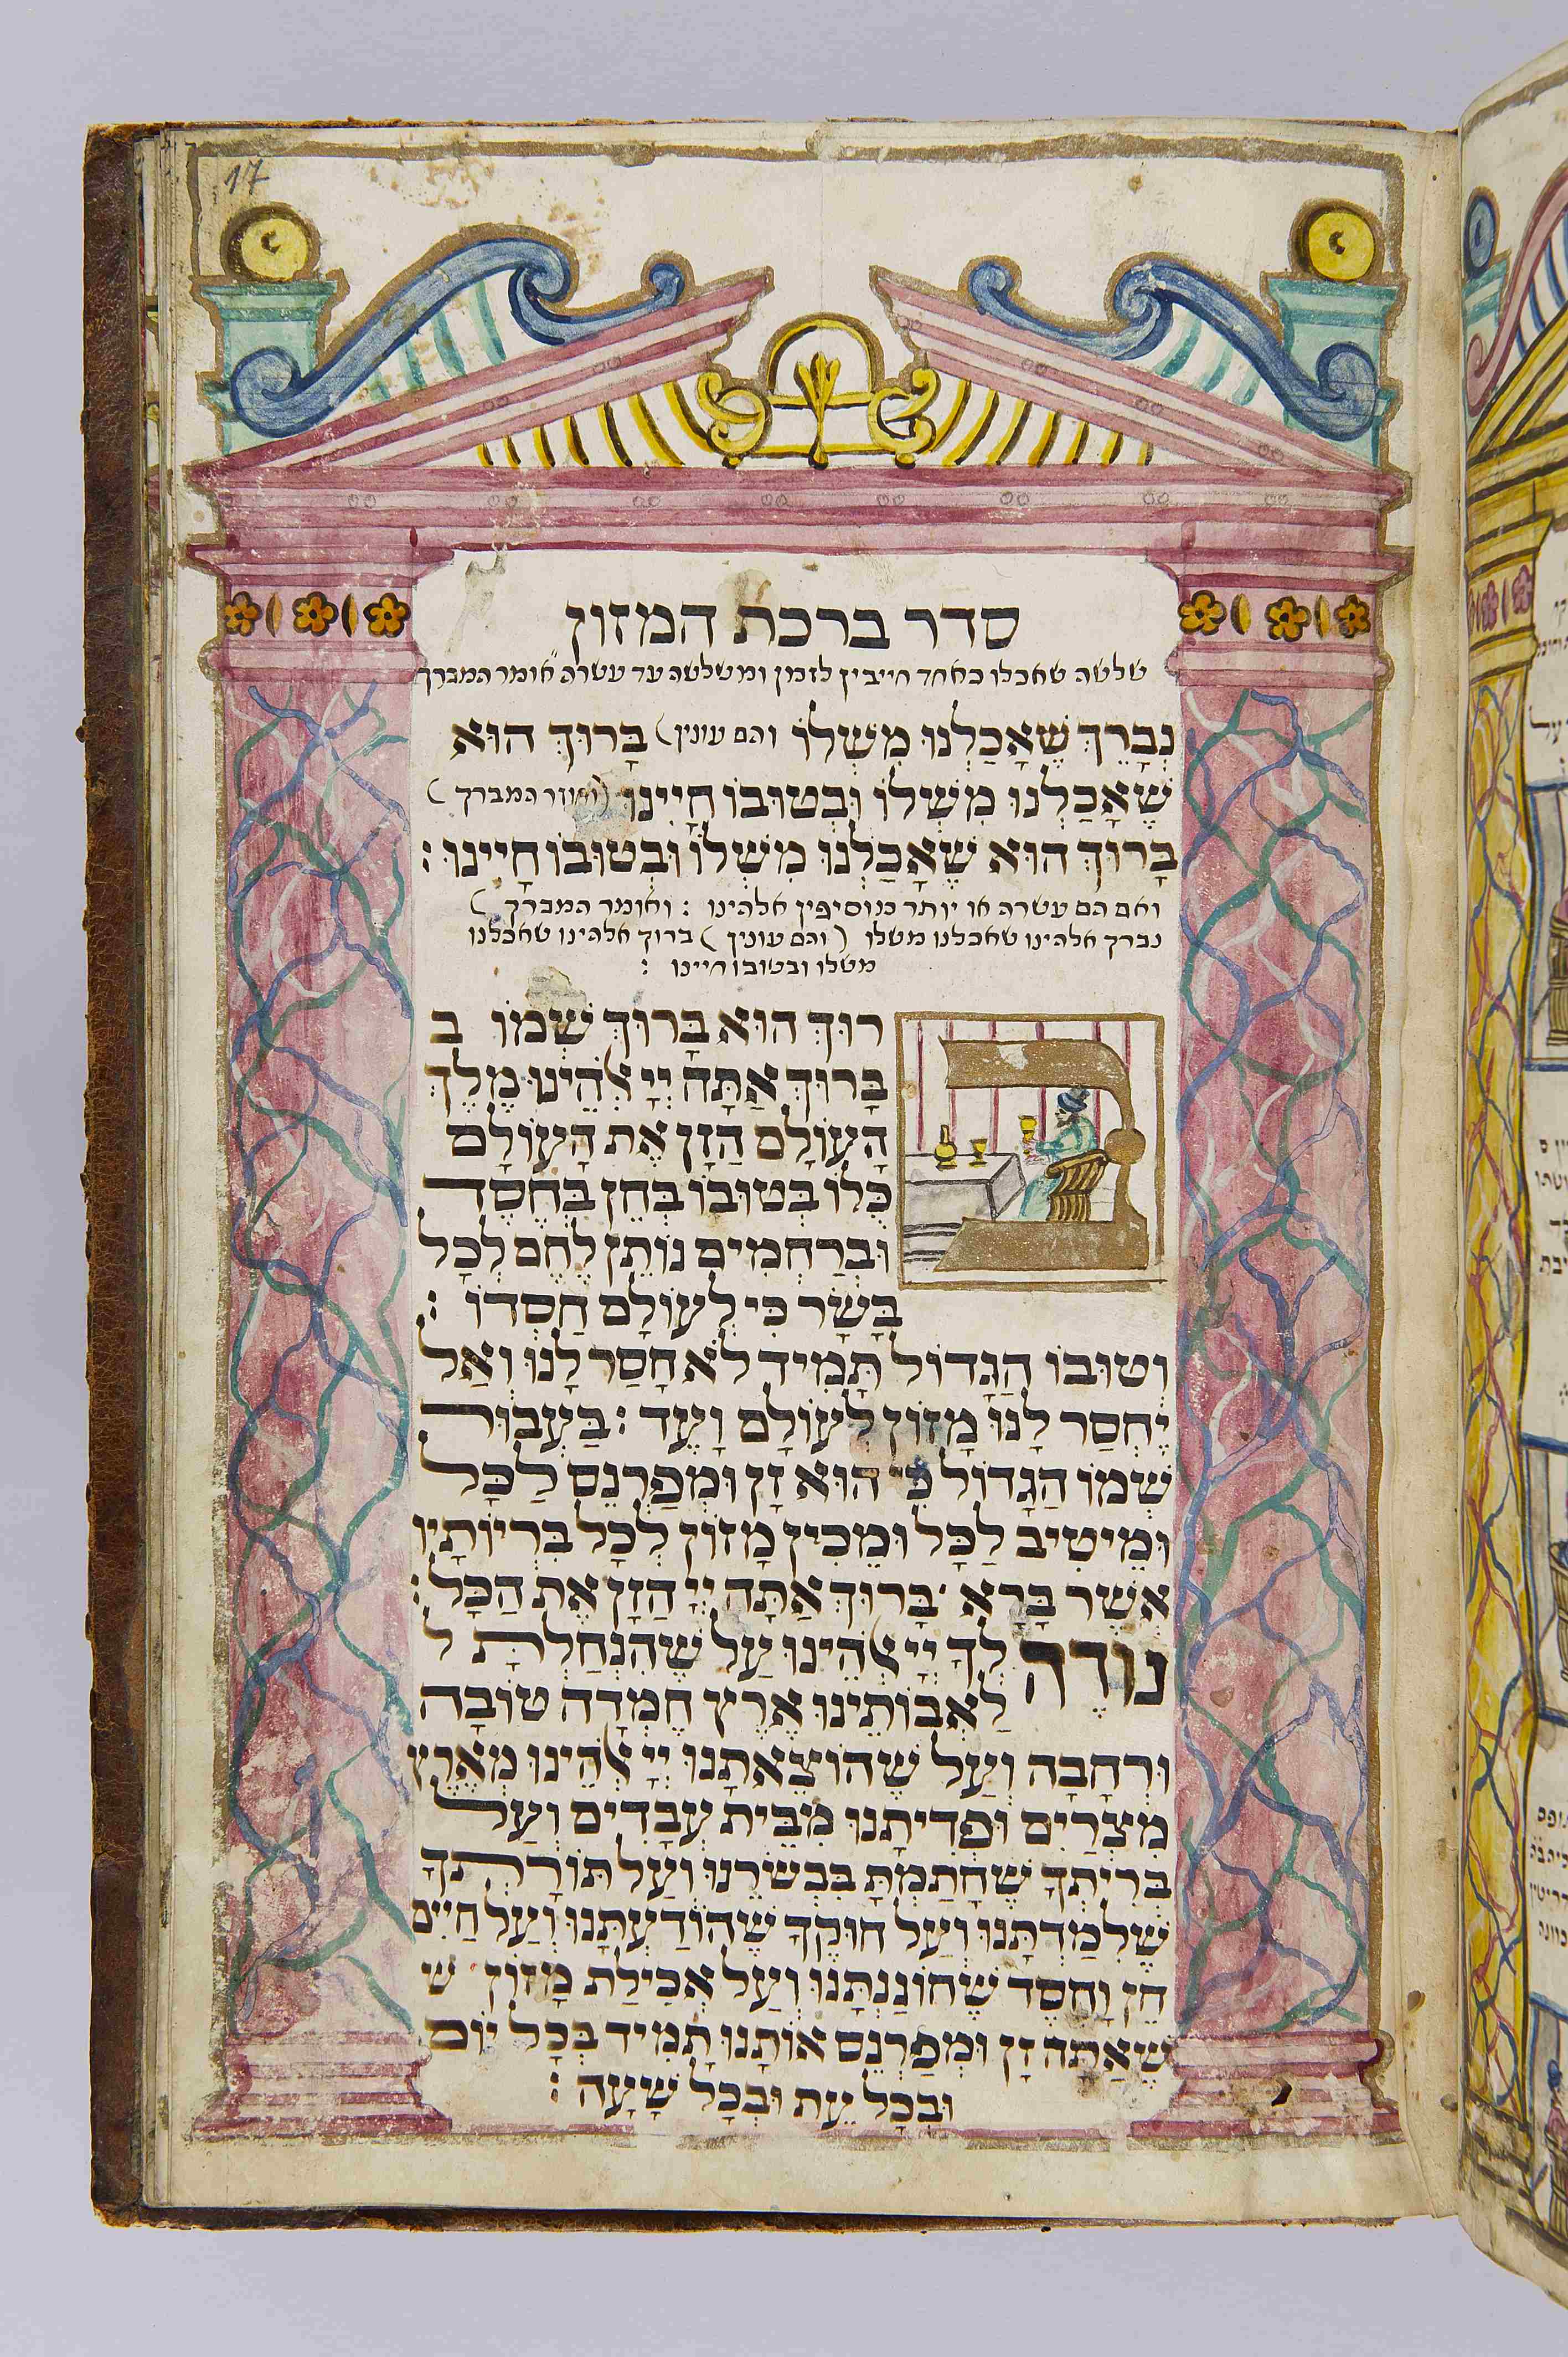 17
סדר ברכת המזון
שלשה שאכלו כאחד חייבין לזמן ומשלשה עד עשרה אומר המברך
נְבָרֵךְ שֶׁאָכַלְנוּ מִשֶׁלוֹ והם עונין) בָּרוּךְ הוּא
שֶׁאָכַלְנוּ מִשֶׁלוֹ וּבְטוּבוֹ חָיִינוּ (וחוזר המברך)
בָּרוּךְ הוּא שֶׁאָכַלְנוּ מִשֶׁלוֹ וּבְטוּבוֹ חָיִינוּ :
ואם הם עשרה או יותר מוסיפין אלהינו : ואומר המברך )
נברך אלהינו שאכלנו משלו ( והם עונין ) ברוך אלהינו שאכלנו
משלו ובטובו חיינו :
ב רוּךְ הוּא בָּרוּךְ שְׁמוֹ ב
בָּרוּךְ אַתָּה יְיָ אֱלֹהֵינוּ מֶלֶךְ
הָעוֹלָם הַזָן אֶת הָעוֹלָם
כֻּלוֹ בְּטוּבוֹ בְּחֵן בְּחֶסֶד
וּבְרַחְמִים נוֹתֵן לֶחֶם לְכָל
בָּשָׂר כִּי לְעוֹלָם חַסְדוֹ :
וּטוּבוֹ הַגָדוֹל תָּמִיד לֹא חָסַר לָנוּ וְאַל
יֶחְסַר לָנוּ מָזוֹן לְעוֹלָם וָעֶד : בַּעֲבוּר
שְׁמוֹ הַגָדוֹל כִּי הוּא זָן וּמְפַרְנֵס לַכָּל
וּמֵיטִיב לַכָּל וּמֵכִין מָזוֹן לְכָל בְּרִיּוֹתָיו
אֲשֶׁר בָּרָא ׳ בָּרוּךְ אַתָּה יְיָ הַזָן אֶת הַכָּל :
נוֹדֶה לְךָ יְיָ אֱלֹהֵינוּ עַל שֶׁהִנְחַלְתָּ ל
לַאֲבוֹתֵינוּ אֶרֶץ חֶמְדָה טוֹבָה
וּרְחָבָה וְעַל שֶׁהוֹצֵאתָנוּ יְיָ אֱלֹהֵינוּ מֵאֶרֶץ
מִצְרַיִם וּפְדִיתָנוּ מִבֵּית עֲבָדִים וְעַל
בְּרִיתְךָ שֶׁחָתַמְתָּ בִּבְשָׂרֵנוּ וְעַל תּוֹרָתְךָ
שֶׁלִמַדְתָּנוּ וְעַל חוּקֶךָ שֶׁהוֹדַעְתָּנוּ וְעַל חַיִים
חֵן וָחֶסֶד שֶׁחוֹנַנְתָּנוּ וְעַל אֲכִילַת מָזוֹן ש
שֶׁאַתָּה זָן וּמְפַרְנֵס אוֹתָנוּ תָּמִיד בְּכָל יוֹם
וּבְכָל עֵת וּבְכָל שָׁעָה :